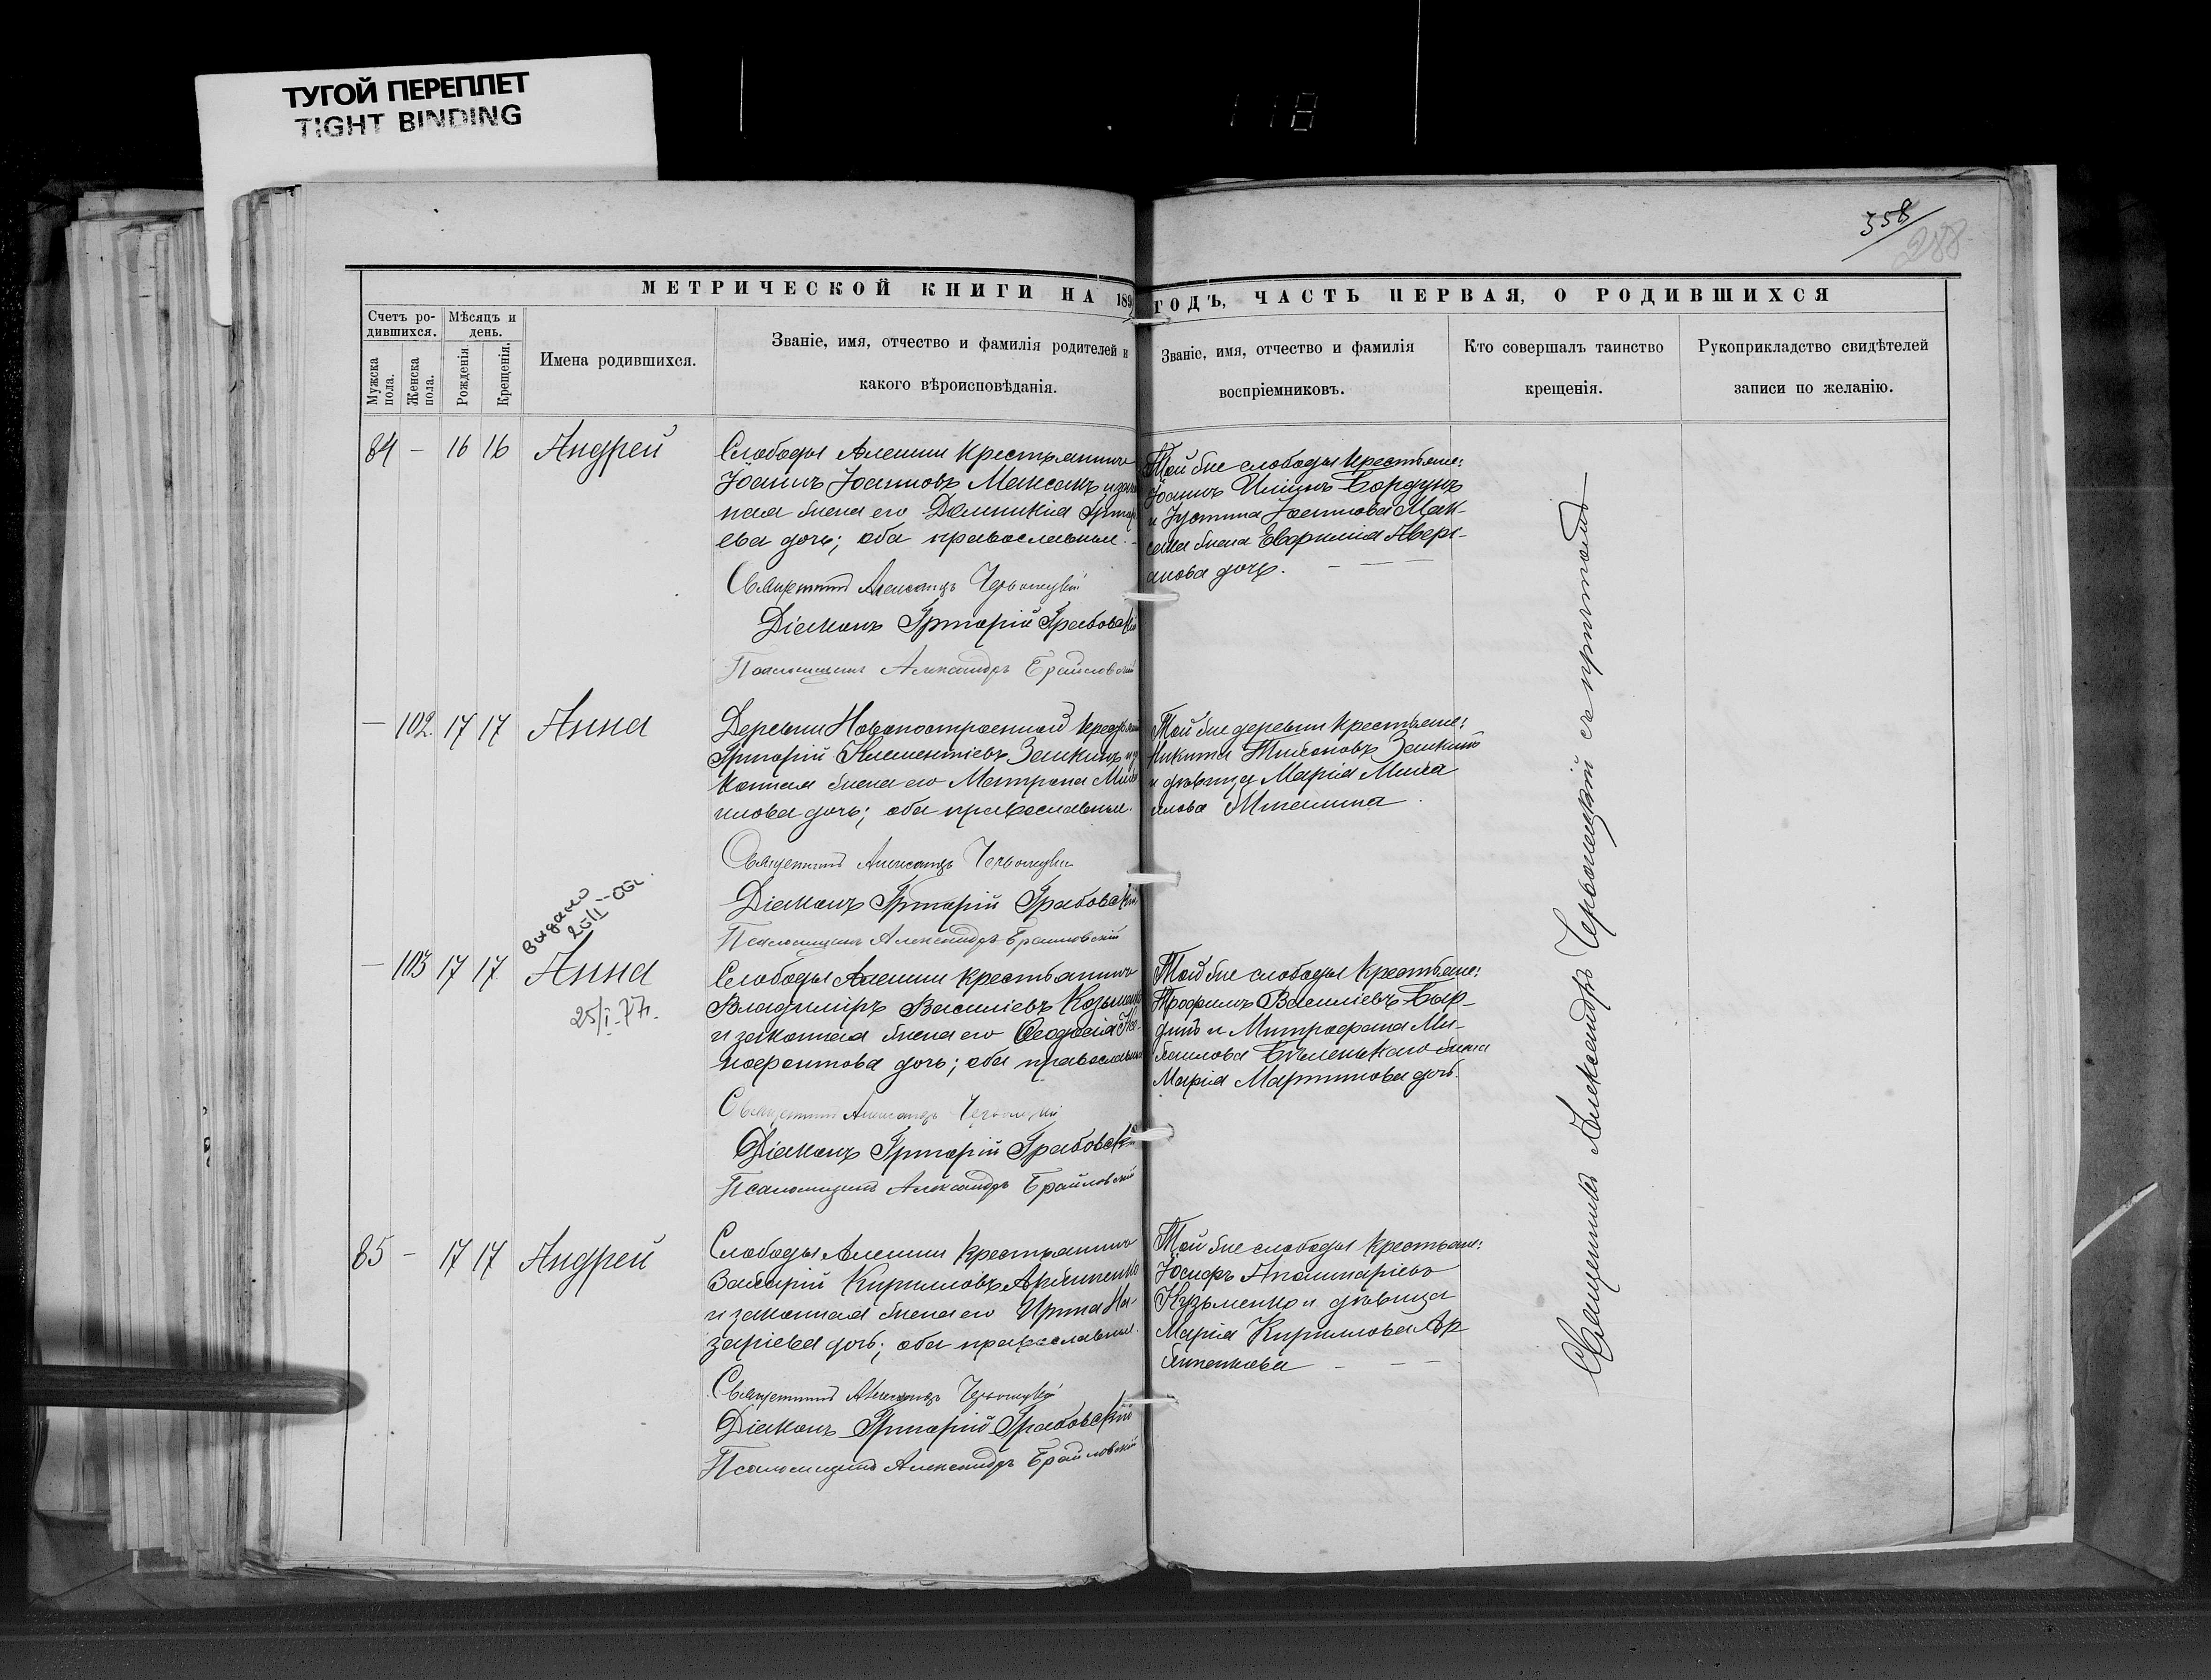 ТУГОЙ ПЕРЕПЛЕТ
TIGHT BINDING
118
358
288
МЕТРИЧЕСКОЙ КНИГИ НА 189
ГОДЪ, ЧАСТЬ ПЕРВАЯ, О РОДИВШИХСЯ
Счетъ ро-
дившихся.
Мѣсяцъ и
день.
Мужска
пола.
Женска
пола.
Рожденія.
Крещенія.
Имена родившихся.
Званіе, имя, отчество и фамилія родителей и
какого вѣроисповѣданія.
Званіе, имя, отчество и фамилія
воспріемниковъ.
Кто совершалъ таинство
крещенія.
Рукоприкладство свидѣтелей
записи по желанію.
84 - 16 16 Андрей
Слободы Алешки крестьянинъ
Іоаннъ Іоанновъ Максакъ и зако
ная жена его Домникія Григор
ева дочь; оба православные.
Священникъ Александръ
Діаконъ Григорій Грабовскій
Псаломщикъ Александръ Браиловскій
Той же слободы крестьяне:
Іоаннъ Бордунъ
и Іустина Іоаннова Мак-
сака жена Евфимія Авери-
анова дочь.
- 102. 17 17 Анна
Деревни Новопостроенной
Григорій Климентіевъ Заикинъ и за
конная жена его Матрона Миха
илова дочь; оба православные.
Священникъ Александръ
Діаконъ Григорій Грабовскій
Псаломщикъ Александръ Браиловскій
Той же деревни крестьяне:
Никита Тихоновъ Заикинъ
и дѣвица Марія Миха
илова
Выдано
- 103 17 17 Анна
25/I-77г.
Слободы Алешки крестьянинъ
Владиміръ Василіевъ Козьменко
и законная жена его Ѳеодосія Ѯе-
нофонтова дочь; оба православные
Священникъ Александръ
Діаконъ Григорій Грабовскій
Псаломщикъ Александръ Браиловскій
Той же слободы крестьяне:
Трофимъ Василіевъ
и Митрофана Ми-
хаилова Бѣленькаго жена
Марія Мартинова дочь.
85 - 17 17 Андрей
Слободы Алешки крестьянинъ
Захарій Кирилловъ
и законная жена его Ирина На-
заріева дочь; оба православные.
Священникъ Александръ
Діаконъ Григорій Грабовскій
Псаломщикъ Александръ Браиловскій
Той же слободы крестьяне:
Іосифъ Аполинаріевъ
Кузьменко и дѣвица
Марія Кириллова
Священникъ Александръ съ причтомъ